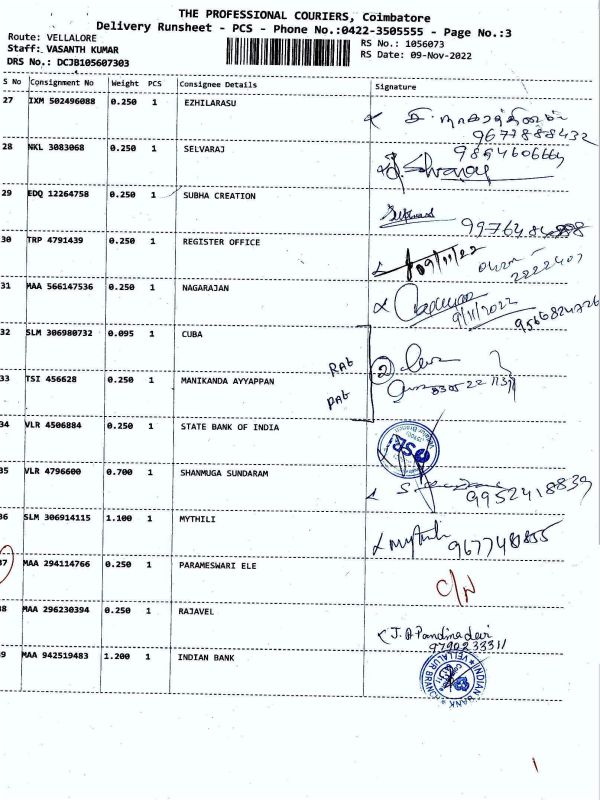 THE PROFESSIONAL COURIERS, Coimbatore
Delivery Runsheet - PCS - Phone No.:0422-3505555 - Page No.:3
Route: VELLALORE
Staff: VASANTH KUMAR
DRS No.: DCJB105607303
RS No.: 1056073
RS Date: 09-Nov-2022
S No Consignment No Weight PCS Consignee Details Signature
27 IXM 502496088 0.250 1 EZHILARASU
9677888432
28 NKL 3083068 0.250 1 SELVARAJ
29 EDQ 12264758 0.250 1 SUBHA CREATION
30 TRP 4791439 0.250 1 REGISTER OFFICE 09/11/22
2222407
31 MAA 566147536 0.250 1 NAGARAJAN
9/11/2022 9566824726
32 SLM 306980732 0.095 1 CUBA
33 TSI 456628 0.250 1 MANIKANDA AYYAPPAN
34 VLR 4506884 0.250 1 STATE BANK OF INDIA
35 VLR 4796600 0.700 1 SHANMUGA SUNDARAM
9952418839
36 SLM 306914115 1.100 1 MYTHILI Mythili
37 MAA 294114766 0.250 1 PARAMESWARI ELE C/N
38 MAA 296230394 0.250 1 RAJAVEL
9790233311
39 MAA 942519483 1.200 1 INDIAN BANK
INDIAN BANK VELLALUR BRANCH